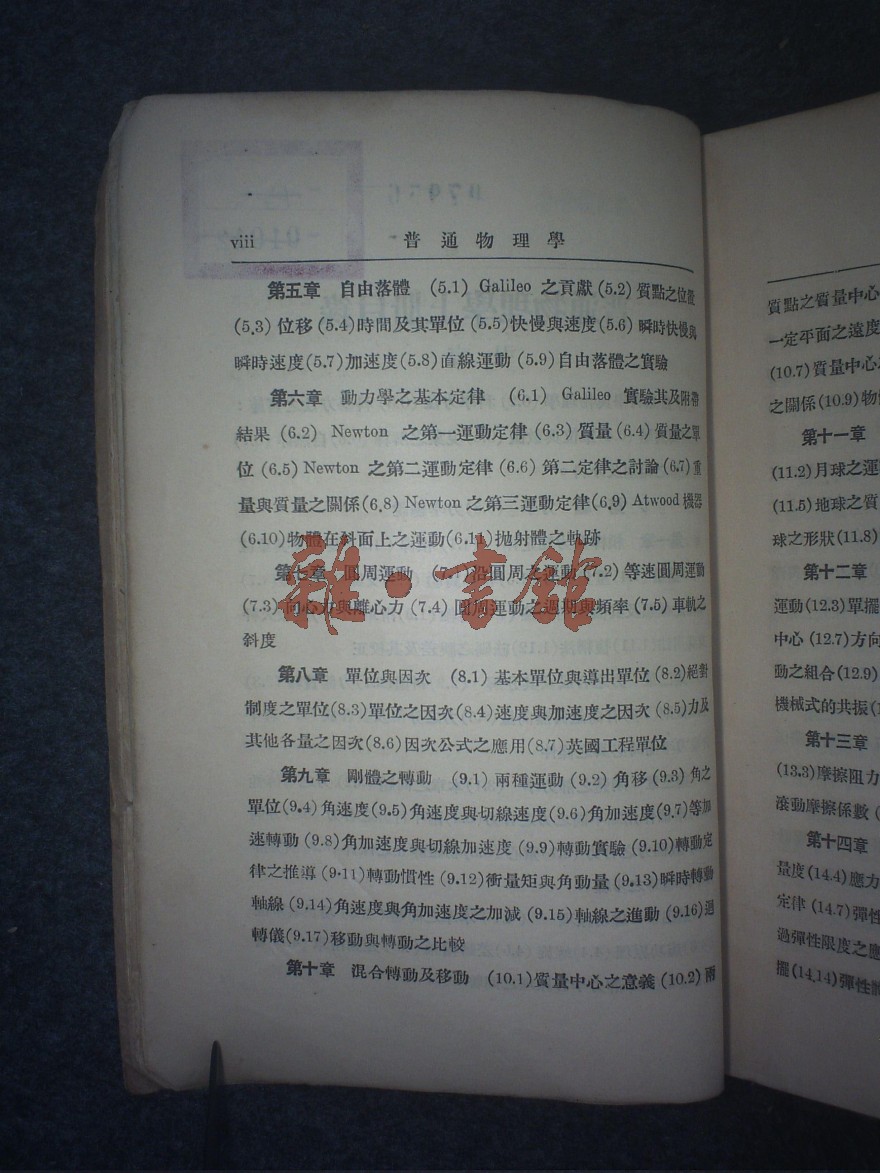 viii 普通物理學
第五章 自由落體 (5.1) Galileo 之貢獻 (5.2) 質點之位置
(5.3) 位移 (5.4) 時間及其單位 (5.5) 快慢與速度 (5.6) 瞬時快慢與
瞬時速度 (5.7) 加速度 (5.8) 直線運動 (5.9) 自由落體之實驗
第六章 動力學之基本定律 (6.1) Galileo 實驗其及附帶
結果 (6.2) Newton 之第一運動定律 (6.3) 質量 (6.4) 質量之單
位 (6.5) Newton 之第二運動定律 (6.6) 第二定律之討論 (6.7) 重
量與質量之關係 (6.8) Newton 之第三運動定律 (6.9) Atwood 機器
(6.10) 物體在斜面上之運動 (6.11) 拋射體之軌跡
第七章 圓周運動 (7.1) 沿圓周之運動 (7.2) 等速圓周運動
(7.3) 向心力與離心力 (7.4) 圓周運動之週期與頻率 (7.5) 車軌之
斜度
第八章 單位與因次 (8.1) 基本單位與導出單位 (8.2) 絕對
制度之單位 (8.3) 單位之因次 (8.4) 速度與加速度之因次 (8.5) 力及
其他各量之因次 (8.6) 因次公式之應用 (8.7) 英國工程單位
第九章 剛體之轉動 (9.1) 兩種運動 (9.2) 角移 (9.3) 角之
單位 (9.4) 角速度 (9.5) 角速度與切線速度 (9.6) 角加速度 (9.7) 等加
速轉動 (9.8) 角加速度與切線加速度 (9.9) 轉動實驗 (9.10) 轉動定
律之推導 (9·11) 轉動慣性 (9.12) 衝量矩與角動量 (9.13) 瞬時轉動
軸線 (9.14) 角速度與角加速度之加減 (9.15) 軸線之進動 (9.16) 迴
轉儀 (9.17) 移動與轉動之比較
第十章 混合轉動及移動 (10.1) 質量中心之意義 (10.2) 兩
雅·書館
質點之質量中心
一定平面之遠度
(10.7) 質量中心
之關係 (10.9) 物
第十一章
(11.2) 月球之運
(11.5) 地球之質
球之形狀 (11.8)
第十二章
運動 (12.3) 單擺
中心 (12.7) 方向
動之組合 (12.9)
機械式的共振
第十三章
(13.3) 摩擦阻力
滾動摩擦係數
第十四章
量度 (14.4) 應力
定律 (14.7) 彈性
過彈性限度之應
擺 (14.14) 彈性